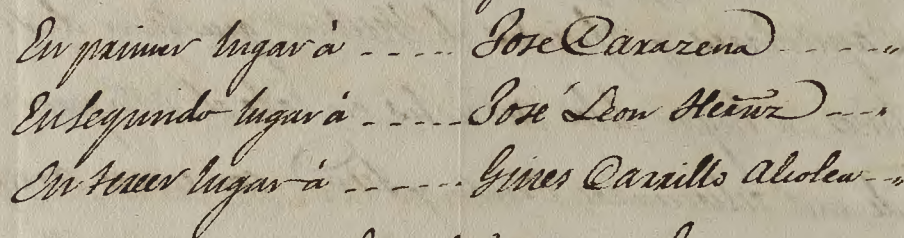 En primer lugar á ----- Jose Carazena ----- "
En segundo lugar á ----- José Leon Hernz ---- "
En tercer lugar á ----- Gines Carrillo Alcolea -- "